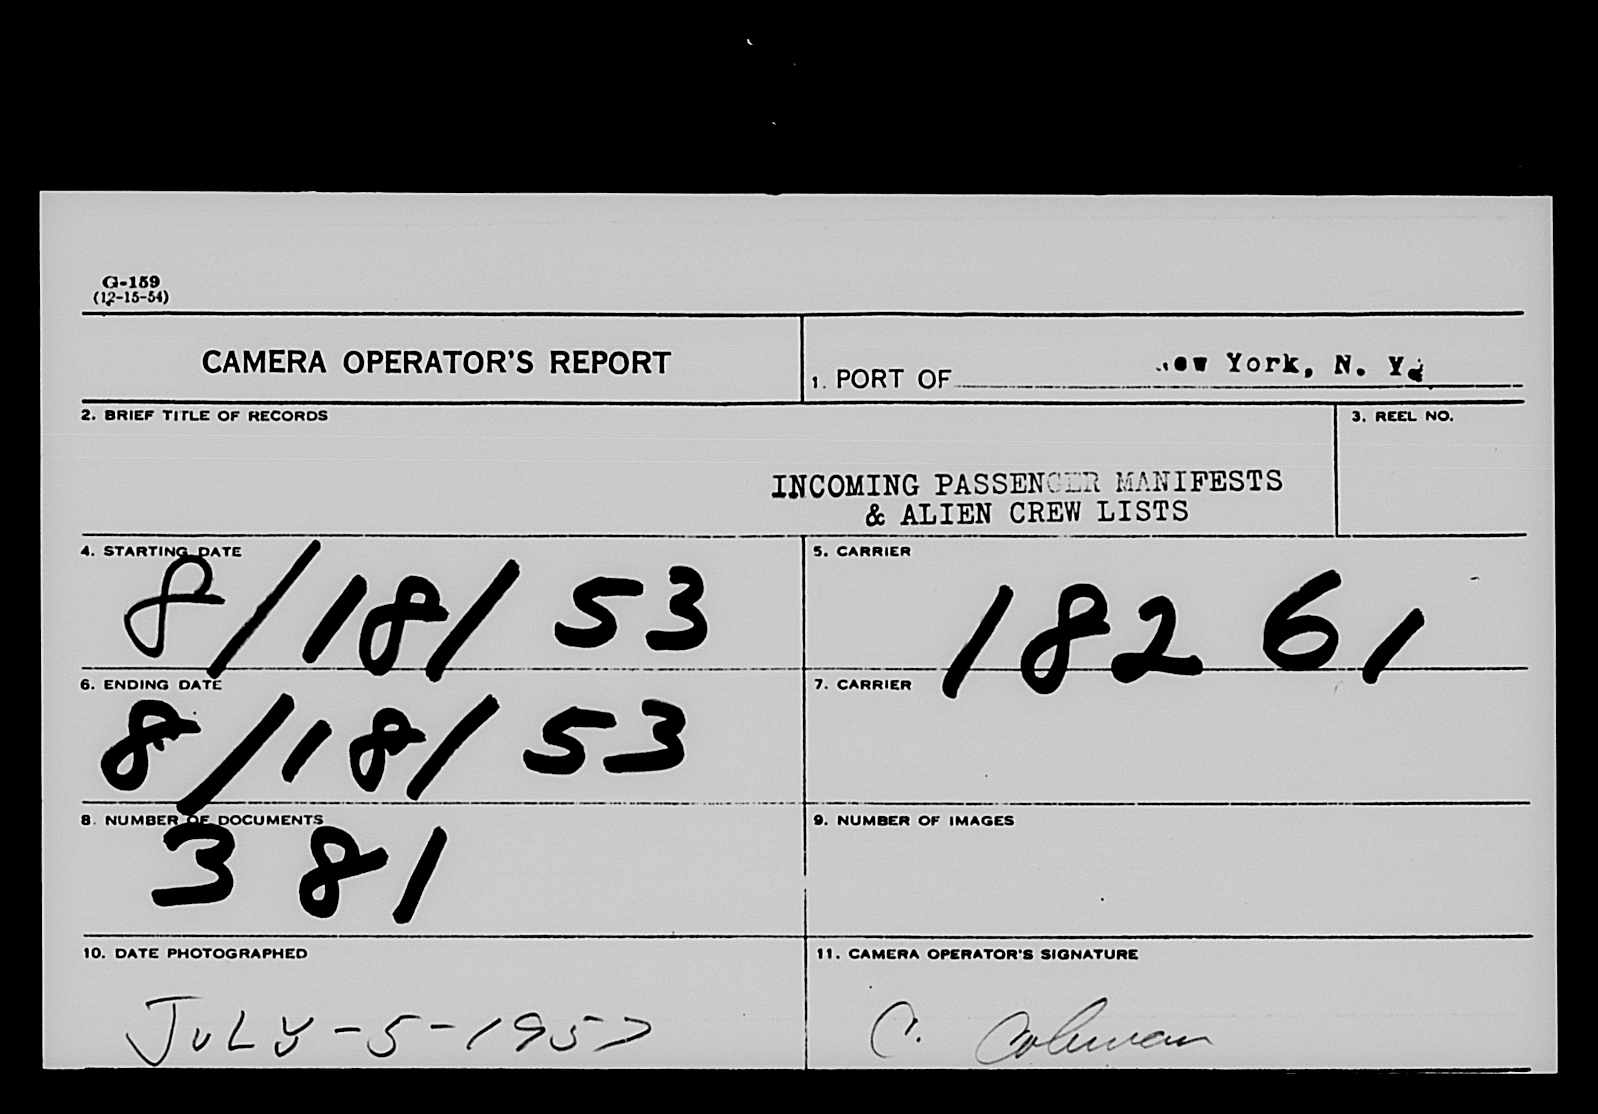 G-159
(12-15-54)
CAMERA OPERATOR'S REPORT
1. PORT OF New York, N. Y.
2. BRIEF TITLE OF RECORDS
3. REEL NO.
INCOMING PASSENGER MANIFESTS
& ALIEN CREW LISTS
4. STARTING DATE
8/18/53
5. CARRIER
18261
6. ENDING DATE
8/18/53
7. CARRIER
8. NUMBER OF DOCUMENTS
381
9. NUMBER OF IMAGES
10. DATE PHOTOGRAPHED
JULY-5-1957
11. CAMERA OPERATOR'S SIGNATURE
C.